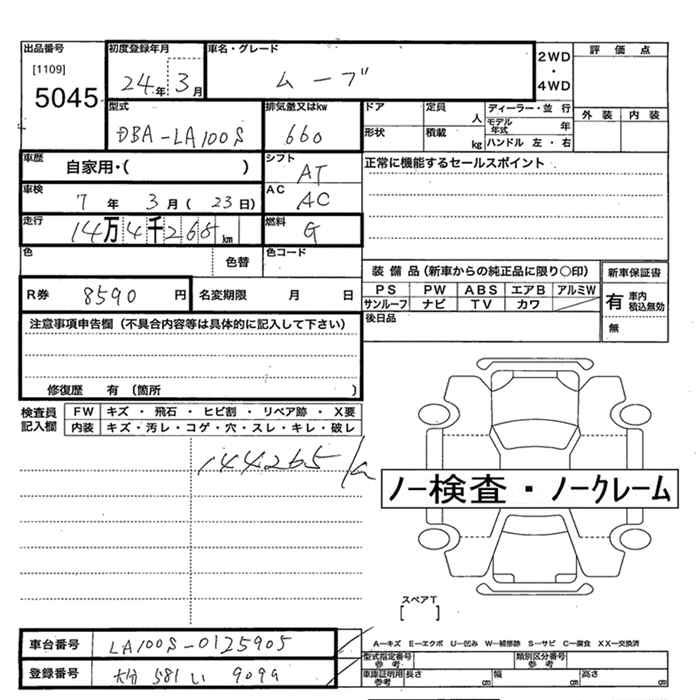 出品番号 初度登録年月 車名・グレード 2WD・4WD 評価点
[1109] 5045 24年 3月 ムーブ
型式 排気量又はkw ドア 定員 人 ディーラー・並 行 外装 内装
DBA-LA100S 660 形状 積載 kg モデル年式 年
ハンドル 左・右
車歴 自家用・( ) シフト AT 正常に機能するセールスポイント
車検 7年 3月 ( 23日) AC AC
走行 14万4千265km 燃料 G
色 色替 色コード
装備品 (新車からの純正品に限り○印) 新車保証書
R券 8590円 名変期限 月 日 PS PW ABS エアB アルミW 有 車内積込無効
サンルーフ ナビ TV カワ 無
注意事項申告欄 (不具合内容等は具体的に記入して下さい) 後日品
修復歴 有 (箇所 )
検査員記入欄 FW キズ・飛石・ヒビ割・リペア跡・X要
内装 キズ・汚レ・コゲ・穴・スレ・キレ・破レ
144265
ノー検査・ノークレーム
スペアT
[ ]
車台番号 LA100S-0125905 A-キズ E-エクボ U-凹み W-補修跡 S-サビ C-腐食 XX-交換済
型式指定番号 参考 類別区分番号 参考
登録番号 大分 581 い 9099 車庫証明用 参考 長さ cm 幅 cm 高さ cm